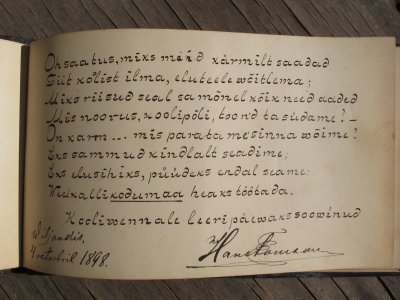 Oh saatus, miks meid karmilt saadad
Siit kolist ilma, eluteele wõitlema;
Miks riisud seal sa mõnel kõik need aaded
Mis noorus, koolipõli, toond ta südame? –
On karm ... mis parata me sinna wõime?
Eks sammud kindlalt seadime;
Eks elusihiks, püüdeks endal seame:
Weel kalli kodumaa heaks töötada.
Kooliwennale leeripäewaks soowinud
Hans Tomson
Wiljandis,
oktobril 1898.